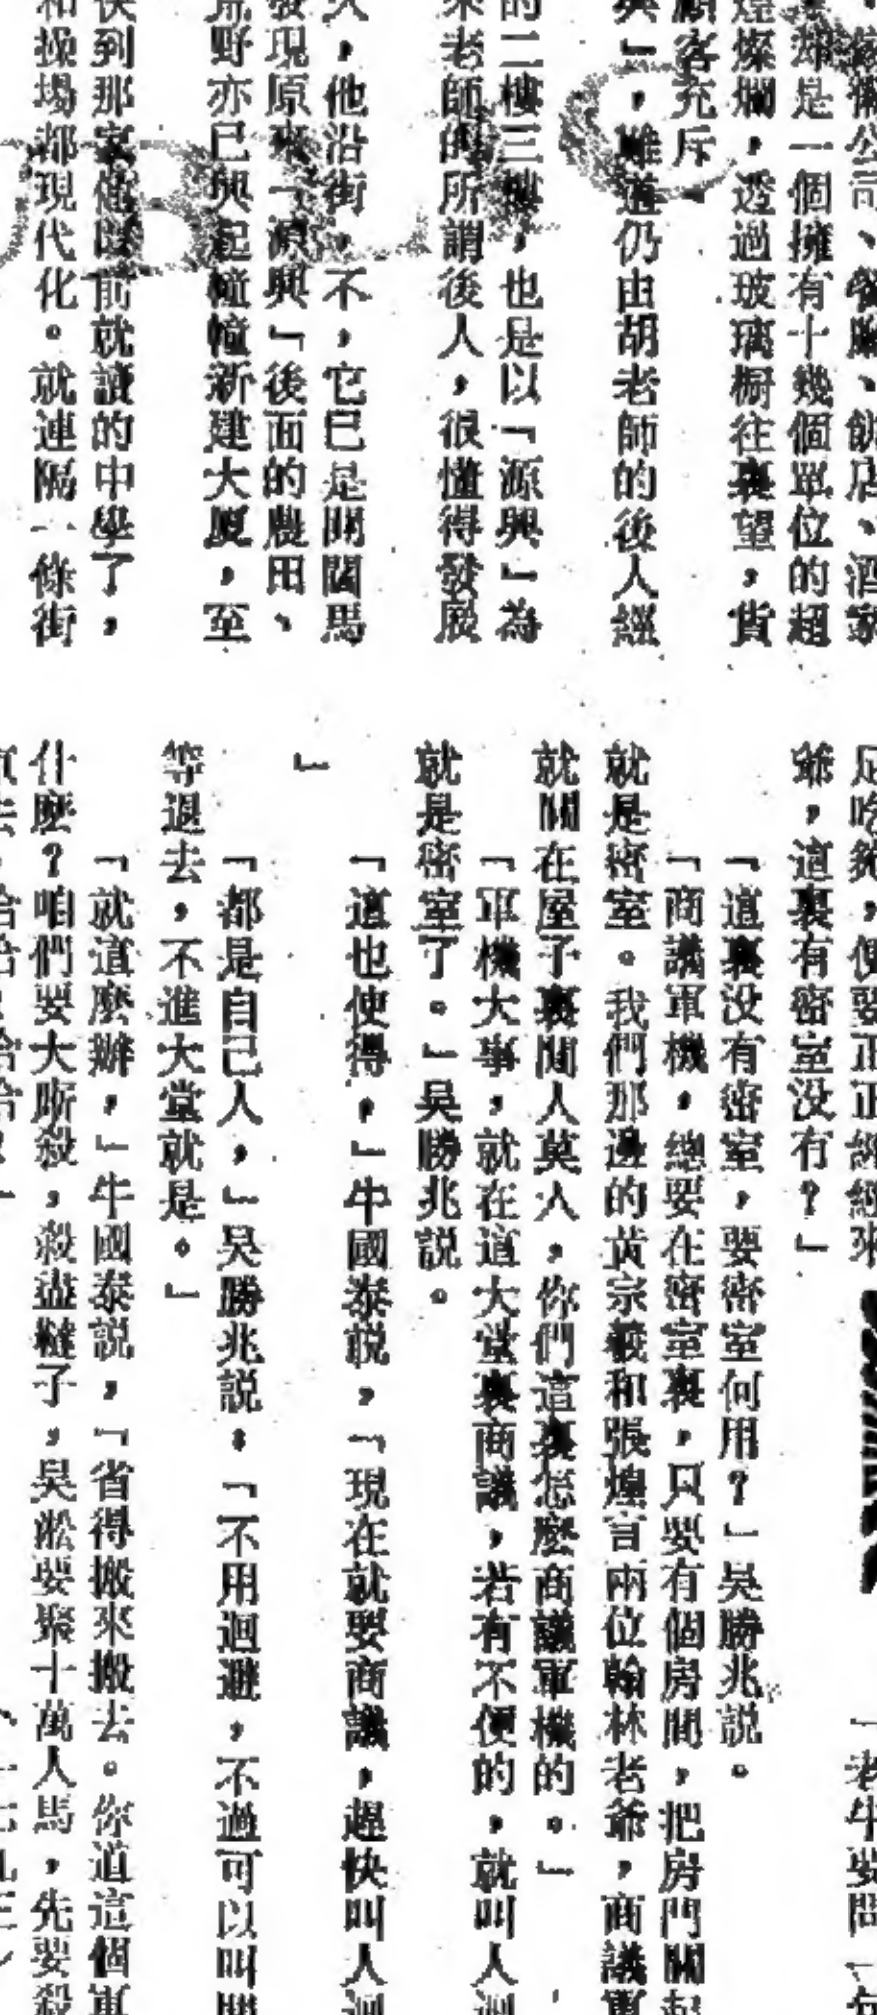 、餐廳、飲店、酒家
却是一個擁有十幾個單位的超
煌燦爛，透過玻璃櫥往裏望，貨
顧客充斥。
興」，雖道仍由胡老師的後人經
的二樓三樓，也是以「源興」為
來老師的所謂後人，很懂得發展
，他沿街，不，它已是開闊馬
發現原來「源興」後面的農田、
荒野亦已興起幢幢新建大廈，至
快到那家他以前就讀的中學了，
和操場都現代化。就連隔一條街
足吃飽，便要正正經經來
爺，這裏有密室没有？」
「這裏没有密室，要密室何用？」吴勝兆説。
「商議軍機，總要在密室裏，只要有個房間，把房門關起
就是密室。我們那邊的黄宗羲和張煌言兩位翰林老爺，商議軍
就關在屋子裏閒人莫入，你們這裏怎麽商議軍機的。」
「軍機大事，就在這大堂裏商議，若有不便的，就叫人迴
就是密室了。」吴勝兆説。
「這也使得，」牛國泰説，「現在就要商議，趕快叫人迴
」
「都是自己人，」吴勝兆説，「不用迴避，不過可以叫
等退去，不進大堂就是。」
「就這麽辦，」牛國泰説，「省得搬來搬去。你道這個軍
什麽？咱們要大厮殺，殺盡韃子，吴淞要聚十萬人馬，先要殺
「老牛要問一句